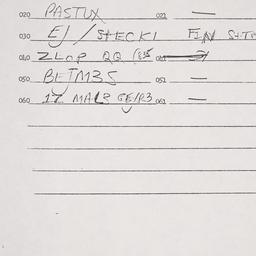 020 PASTUX 021 —
030 EJ / STECKI FIN
040 ZLOP QQ
050 BETM35 051 —
060 17 MALE GE/R3 061 —